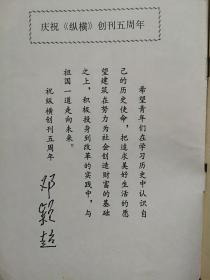 庆祝《纵横》创刊五周年
希望青年们在学习历史中认识自
己的历史使命，把追求美好生活的愿
望建筑在努力为社会创造财富的基础
之上，积极投身到改革的实践中，与
祖国一道走向未来。
祝纵横创刊五周年
邓颖超